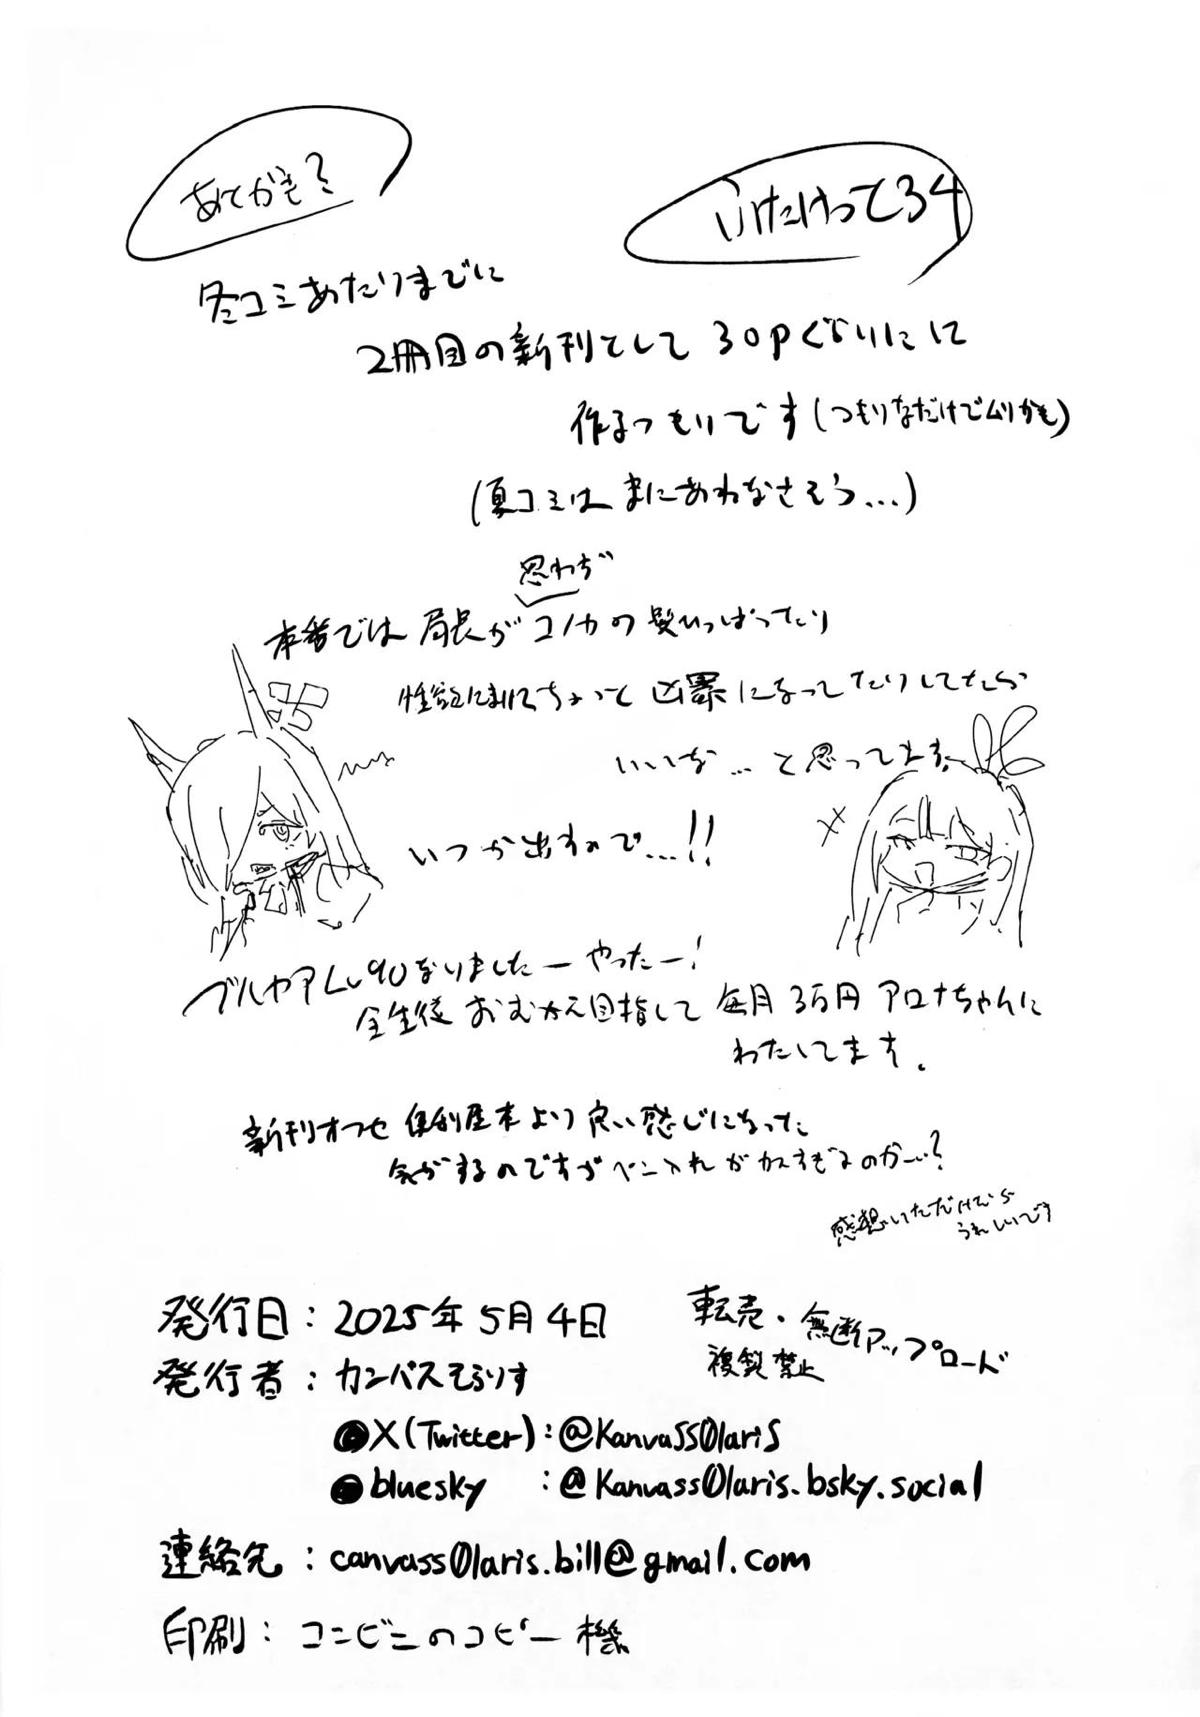 あとがき？
冬コミあたりまでに
2冊目の新刊として 30Pぐらいに
作るつもりです(つもりなだけでムリかも)
(夏コミは まにあわなさそう...)
思わず
本番では 局長が コノカの 髪ひっぱったり
性欲にまけてちょっと 凶暴になってたりしてたら
いいな... と思ってます。
いつか出すので...!!
ブルアカLv90なりましたーやったー!
全生徒 おむかえ目指して 毎月 3万円 アロナちゃんに
わたしてます。
新刊オフセ 便利屋本より 良い感じになった
気がするのですが ペン入れが カスすぎるのか…?
感想いただけたら
うれしいです
発行日：2025年5月4日
転売・無断アップロード
複製禁止
発行者：カンバスそらりす
●X(Twitter)：@KanvasS0lariS
●bluesky ：@Kanvass0laris.bsky.social
連絡先：canvass0laris.bill@gmail.com
印刷：コンビニのコピー機